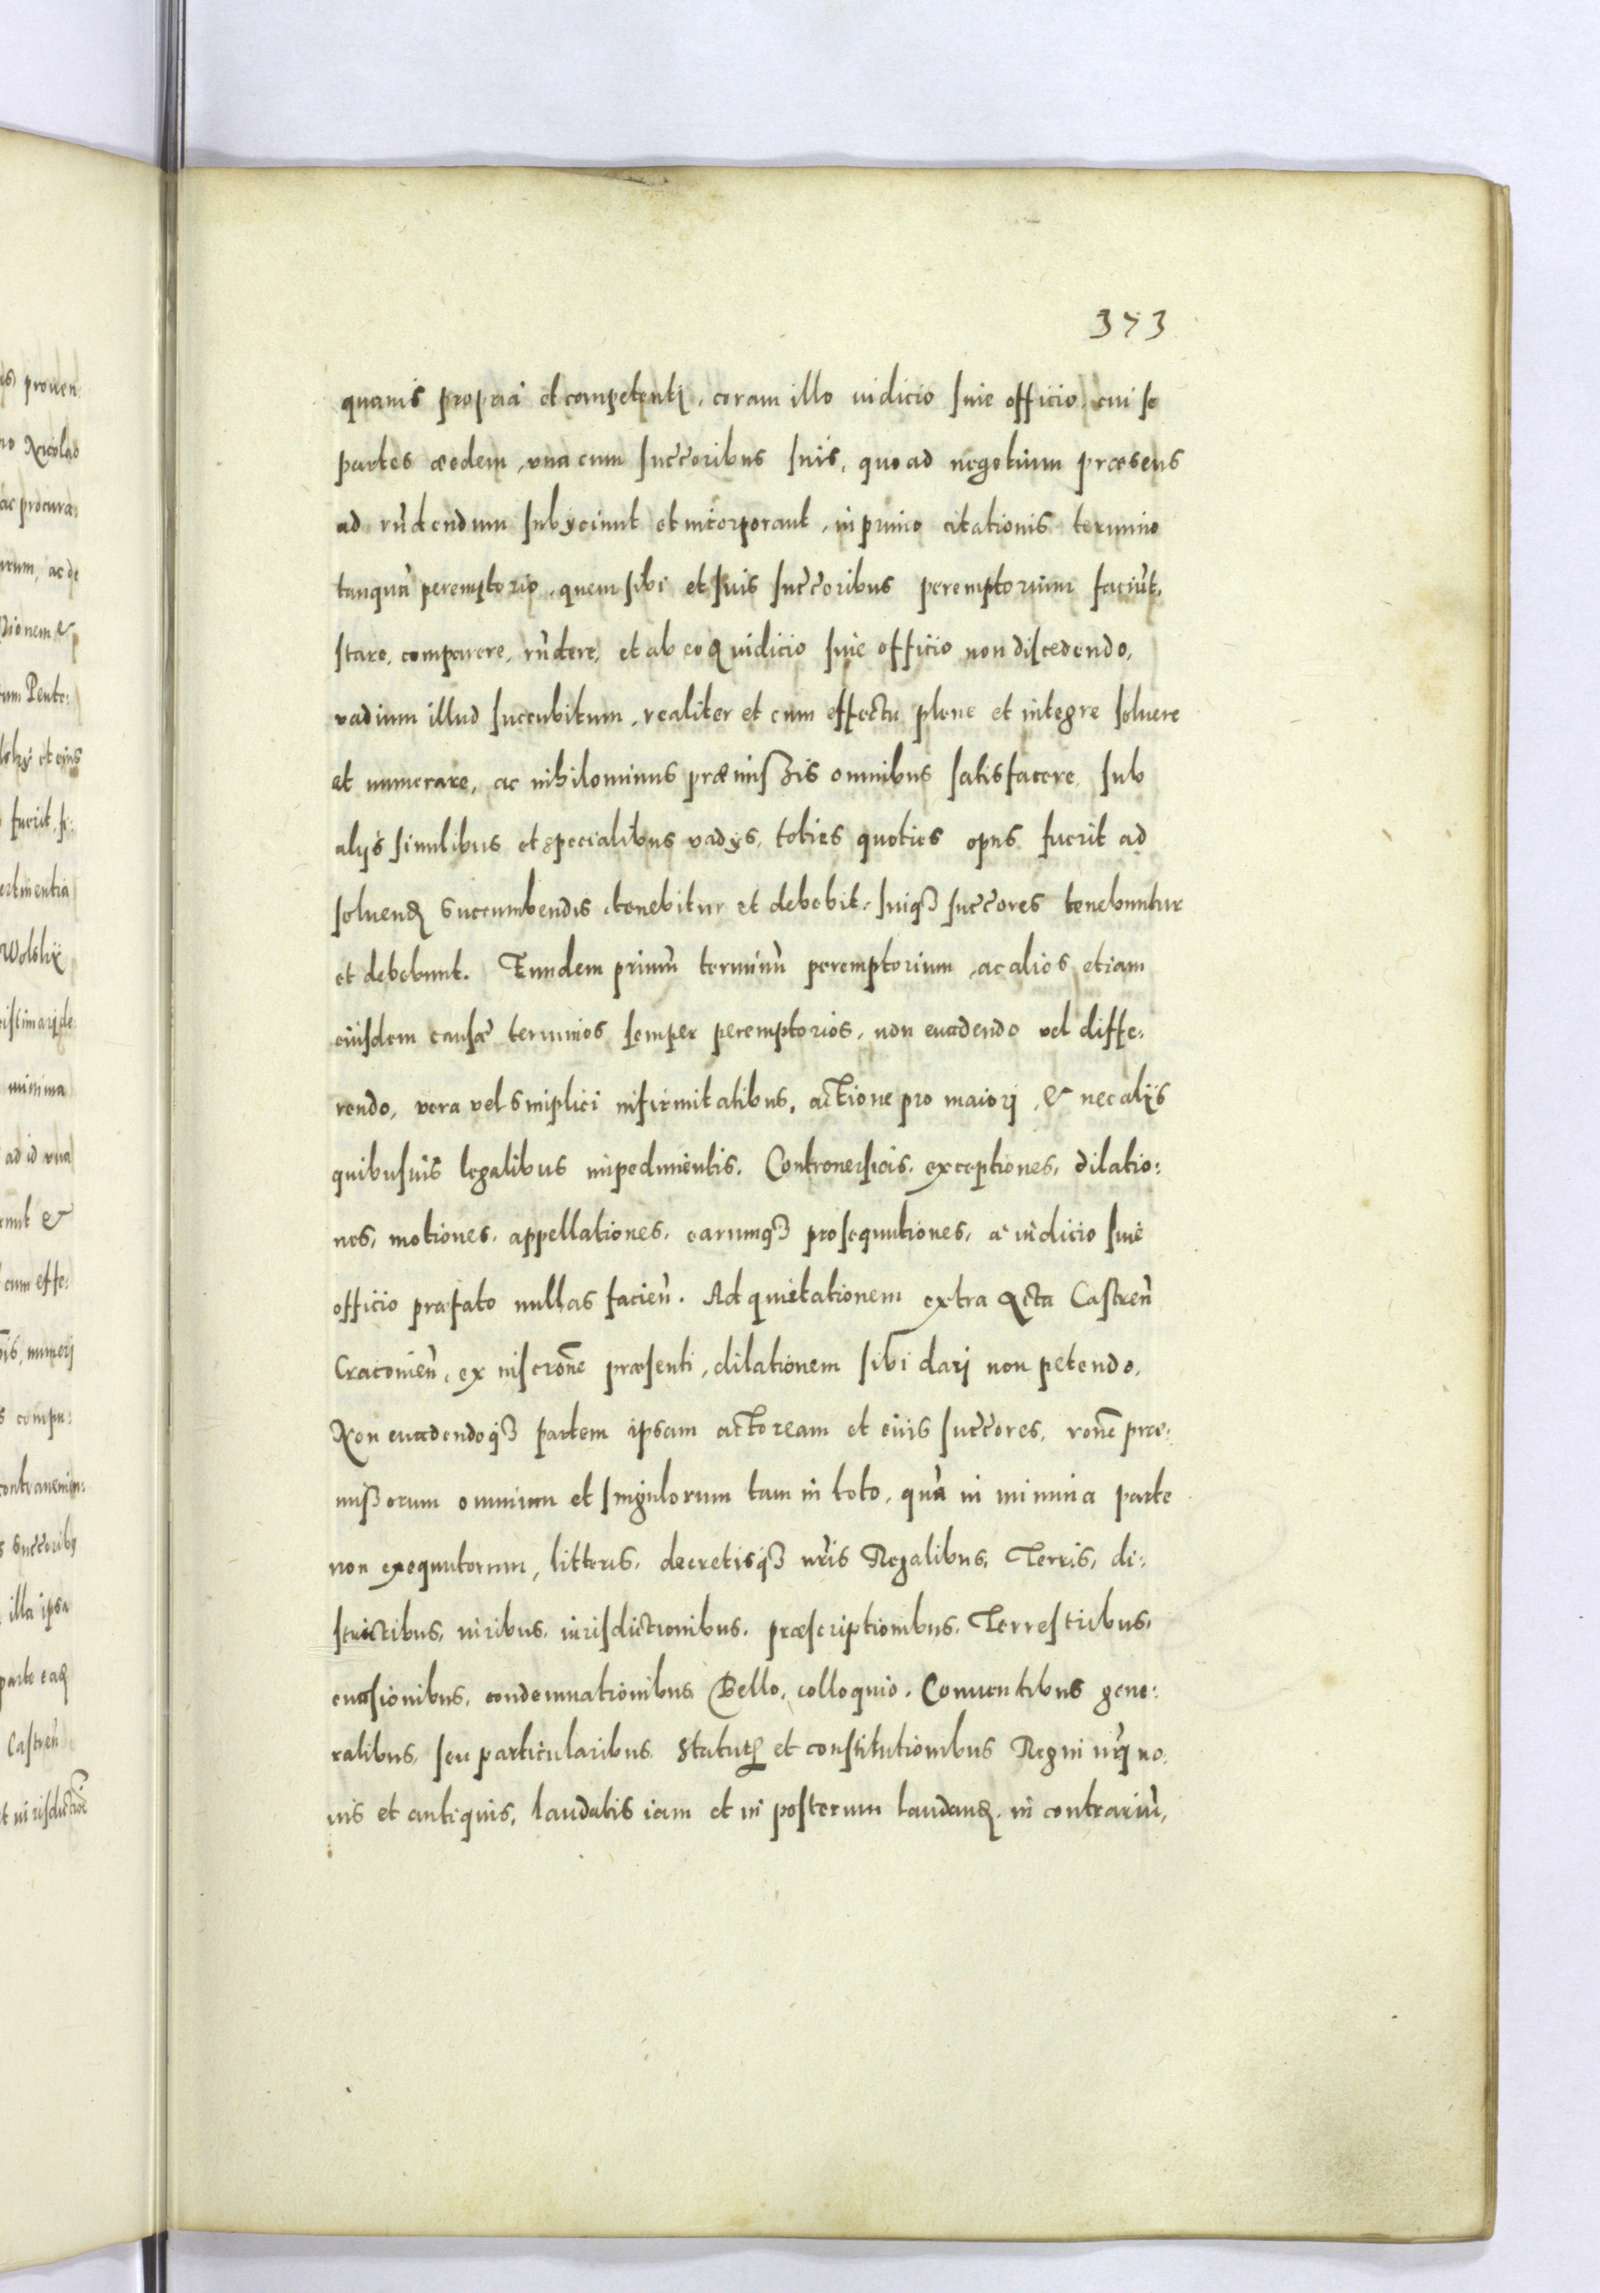 373
quauis propria et competenti, coram illo iudicio siue officio, cui se
partes eædem, vna cum succ̃oribus suis, quo ad negotium præsens
ad rñdendum subyciunt et incorporant, in primo citationis termino
tanquã peremptorio, quem sibi et suis succ̃oribus peremptorium faciũt,
stare, comparere, rñdere, et ab eoq iudicio siue officio non discedendo,
vadium illud succubitum, realiter et cum effectu plene et integre soluere
et numerare, ac nihilominus præmißis omnibus satisfacere, sub
alijs similibus et specialibus vadys, toties quoties opus fuerit ad
soluend succumbendis, tenebitur et debebit, suiqȝ succ̃ores tenebuntur
et debebunt. Eundem primũ terminũ peremptorium, ac alios etiam
eiusdem causæ terminos semper peremptorios, non euadendo vel diffe:
rendo, vera vel simplici infirmitatibus, actione pro maiori, & nec alijs
quibusuis legalibus impedimentis. Controuersias, exceptiones, dilatio:
nes, motiones, appellationes, earumqȝ prosequutiones, a iudicio siue
officio præfato nullas facieñ. Ad quietationem extra Acta Castreñ
Cracouieñ, ex inscrõne præsenti, dilationem sibi darj non petendo,
Non euadendoqȝ partem ipsam actoream et eius succ̃ores, rõne præ:
mißorum omnium et singulorum tam in toto, quã in minima parte
non exequutorum, litteris, decretisqȝ nr̃is Regalibus, Terris, di:
strictibus, iuribus, iurisdictionibus, præscriptionibus, Terrestribus,
euasionibus, condemnationibus, Bello, colloquio, Conuentibus gene:
ralibus, seu particularibus, Statutis et constitutionibus Regni nr̃j no:
uis et antiquis, laudatis iam et in posterum laudand, in contrariũ,
is prouen
no Nicolao
ac procura:
arum, ac de
tionem &
um Pente:
lsky et eius
fuerit, si:
ertinentia
Wolsky
istimarj de
minima
ad id vna
runt &
cum effe:
numerj
s compu:
contrauenien:
s Succ̃oribꝰ
illa ipsa
parte
Castreñ
et iurisdictiõe